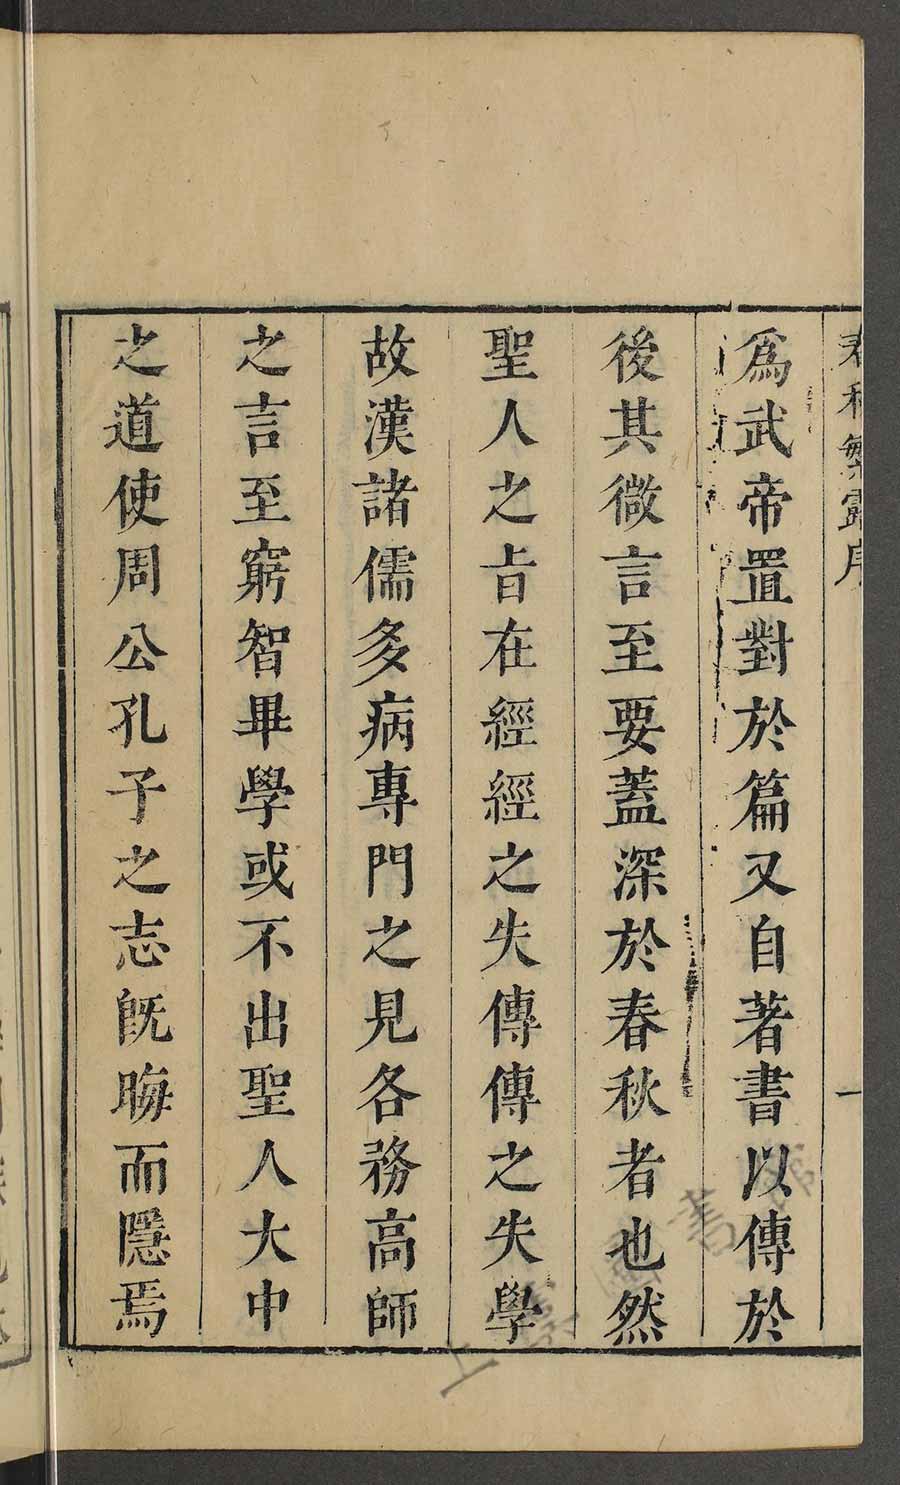 春秋繁露序
一
爲武帝置對於篇又自著書以傳於
後其微言至要蓋深於春秋者也然
聖人之旨在經經之失傳傳之失學
故漢諸儒多病專門之見各務高師
之言至窮智畢學或不出聖人大中
之道使周公孔子之志旣晦而隱焉